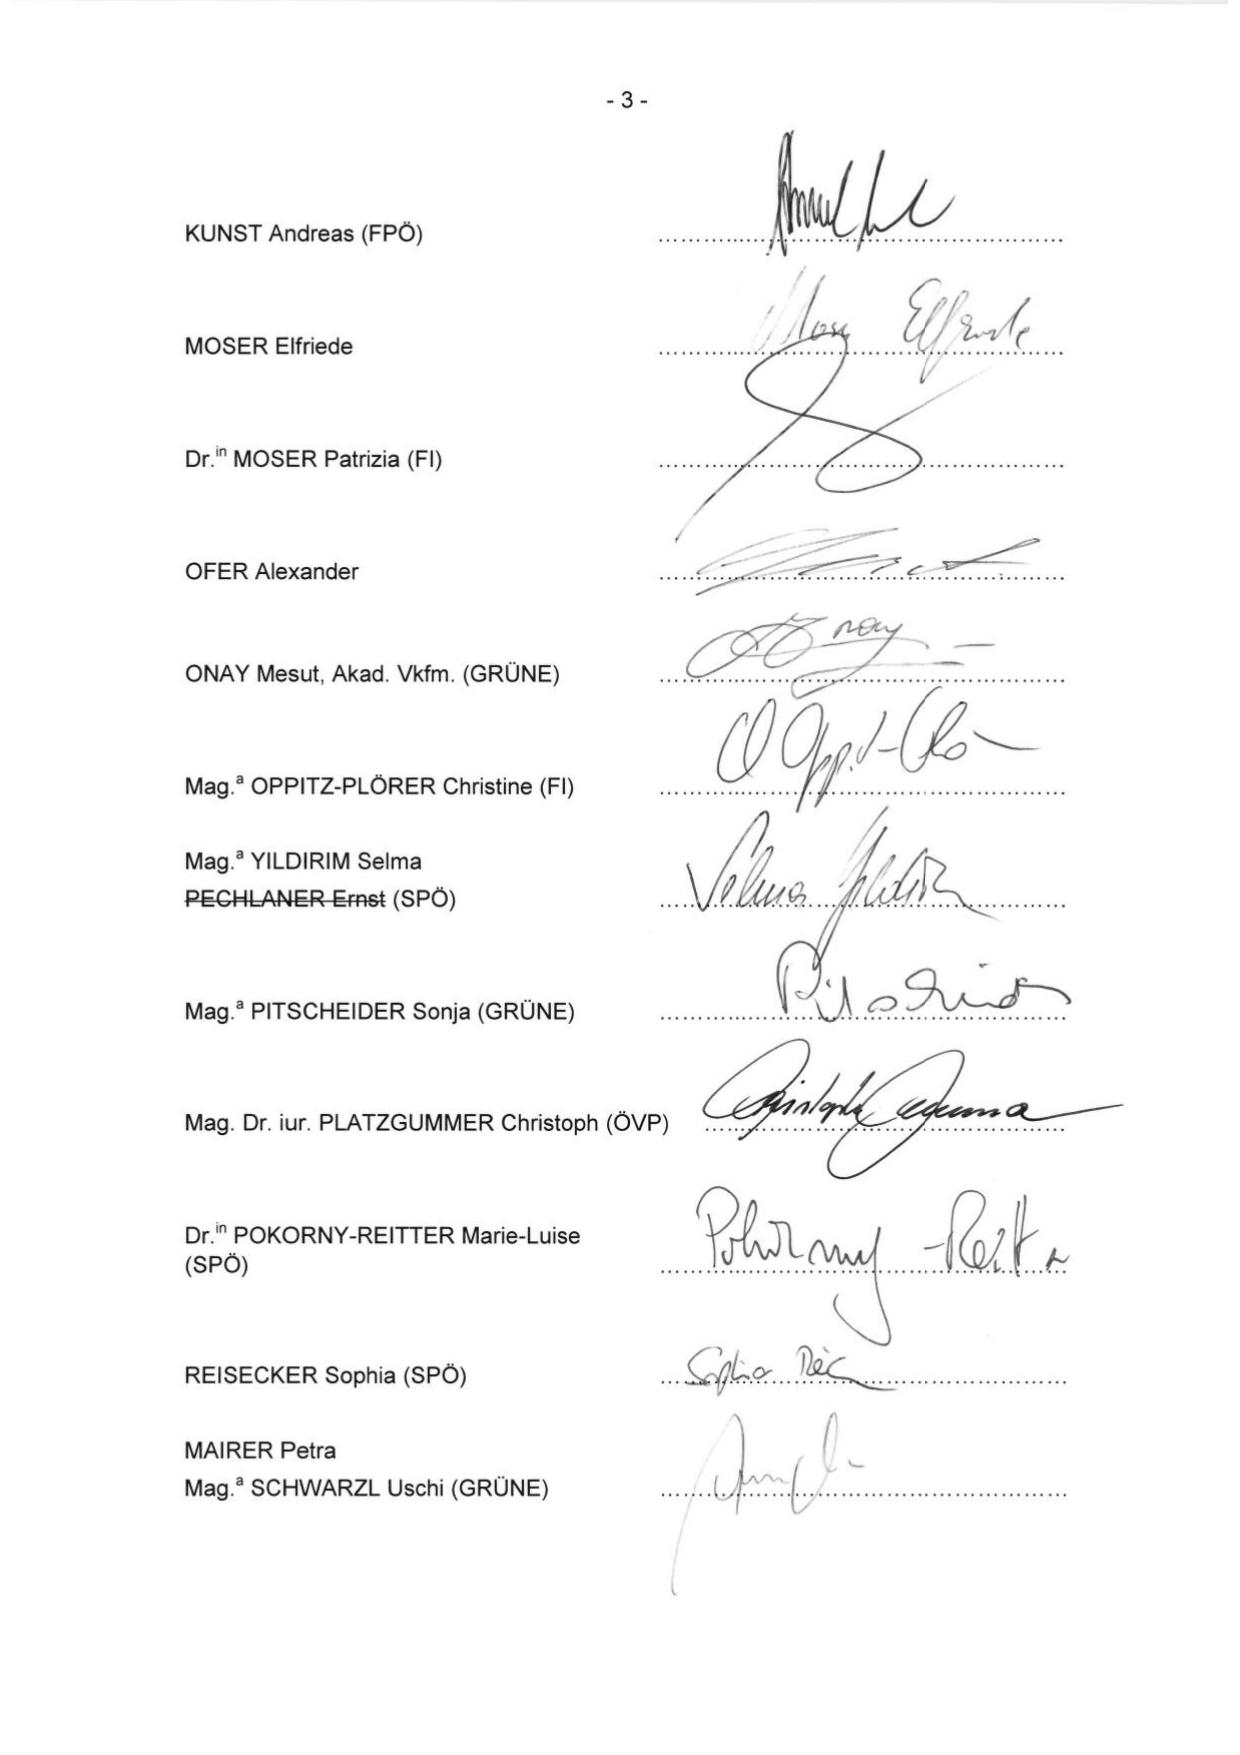 - 3 -
KUNST Andreas (FPÖ)
MOSER Elfriede
Moser Elfriede
Dr.in MOSER Patrizia (FI)
OFER Alexander
ONAY Mesut, Akad. Vkfm. (GRÜNE)
Onay
Mag.a OPPITZ-PLÖRER Christine (FI)
Mag.a YILDIRIM Selma
PECHLANER Ernst (SPÖ)
Selma Yildirim
Mag.a PITSCHEIDER Sonja (GRÜNE)
Pitscheider
Mag. Dr. iur. PLATZGUMMER Christoph (ÖVP)
Dr.in POKORNY-REITTER Marie-Luise
(SPÖ)
Pokorny-Reitter
REISECKER Sophia (SPÖ)
Sophia
MAIRER Petra
Mag.a SCHWARZL Uschi (GRÜNE)